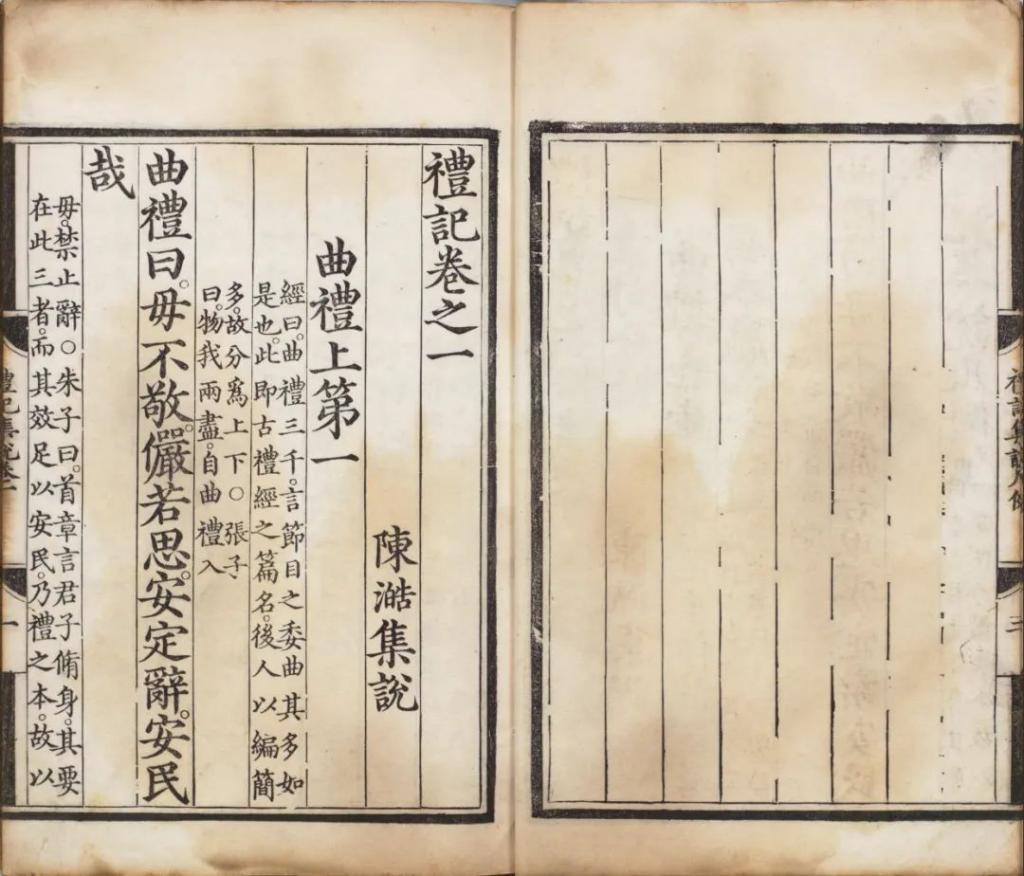 禮記集說凡例
三
禮記卷之一
陳澔集說
曲禮上第一
經曰。曲禮三千。言節目之委曲其多如
是也。此即古禮經之篇名。後人以編簡
多。故分爲上下。○張子
曰。物我兩盡。自曲禮入
曲禮曰。毋不敬。儼若思。安定辭。安民
哉
毋。禁止辭。○朱子曰。首章言君子脩身。其要
在此三者。而其效足以安民。乃禮之本。故以
禮記集說卷一
一